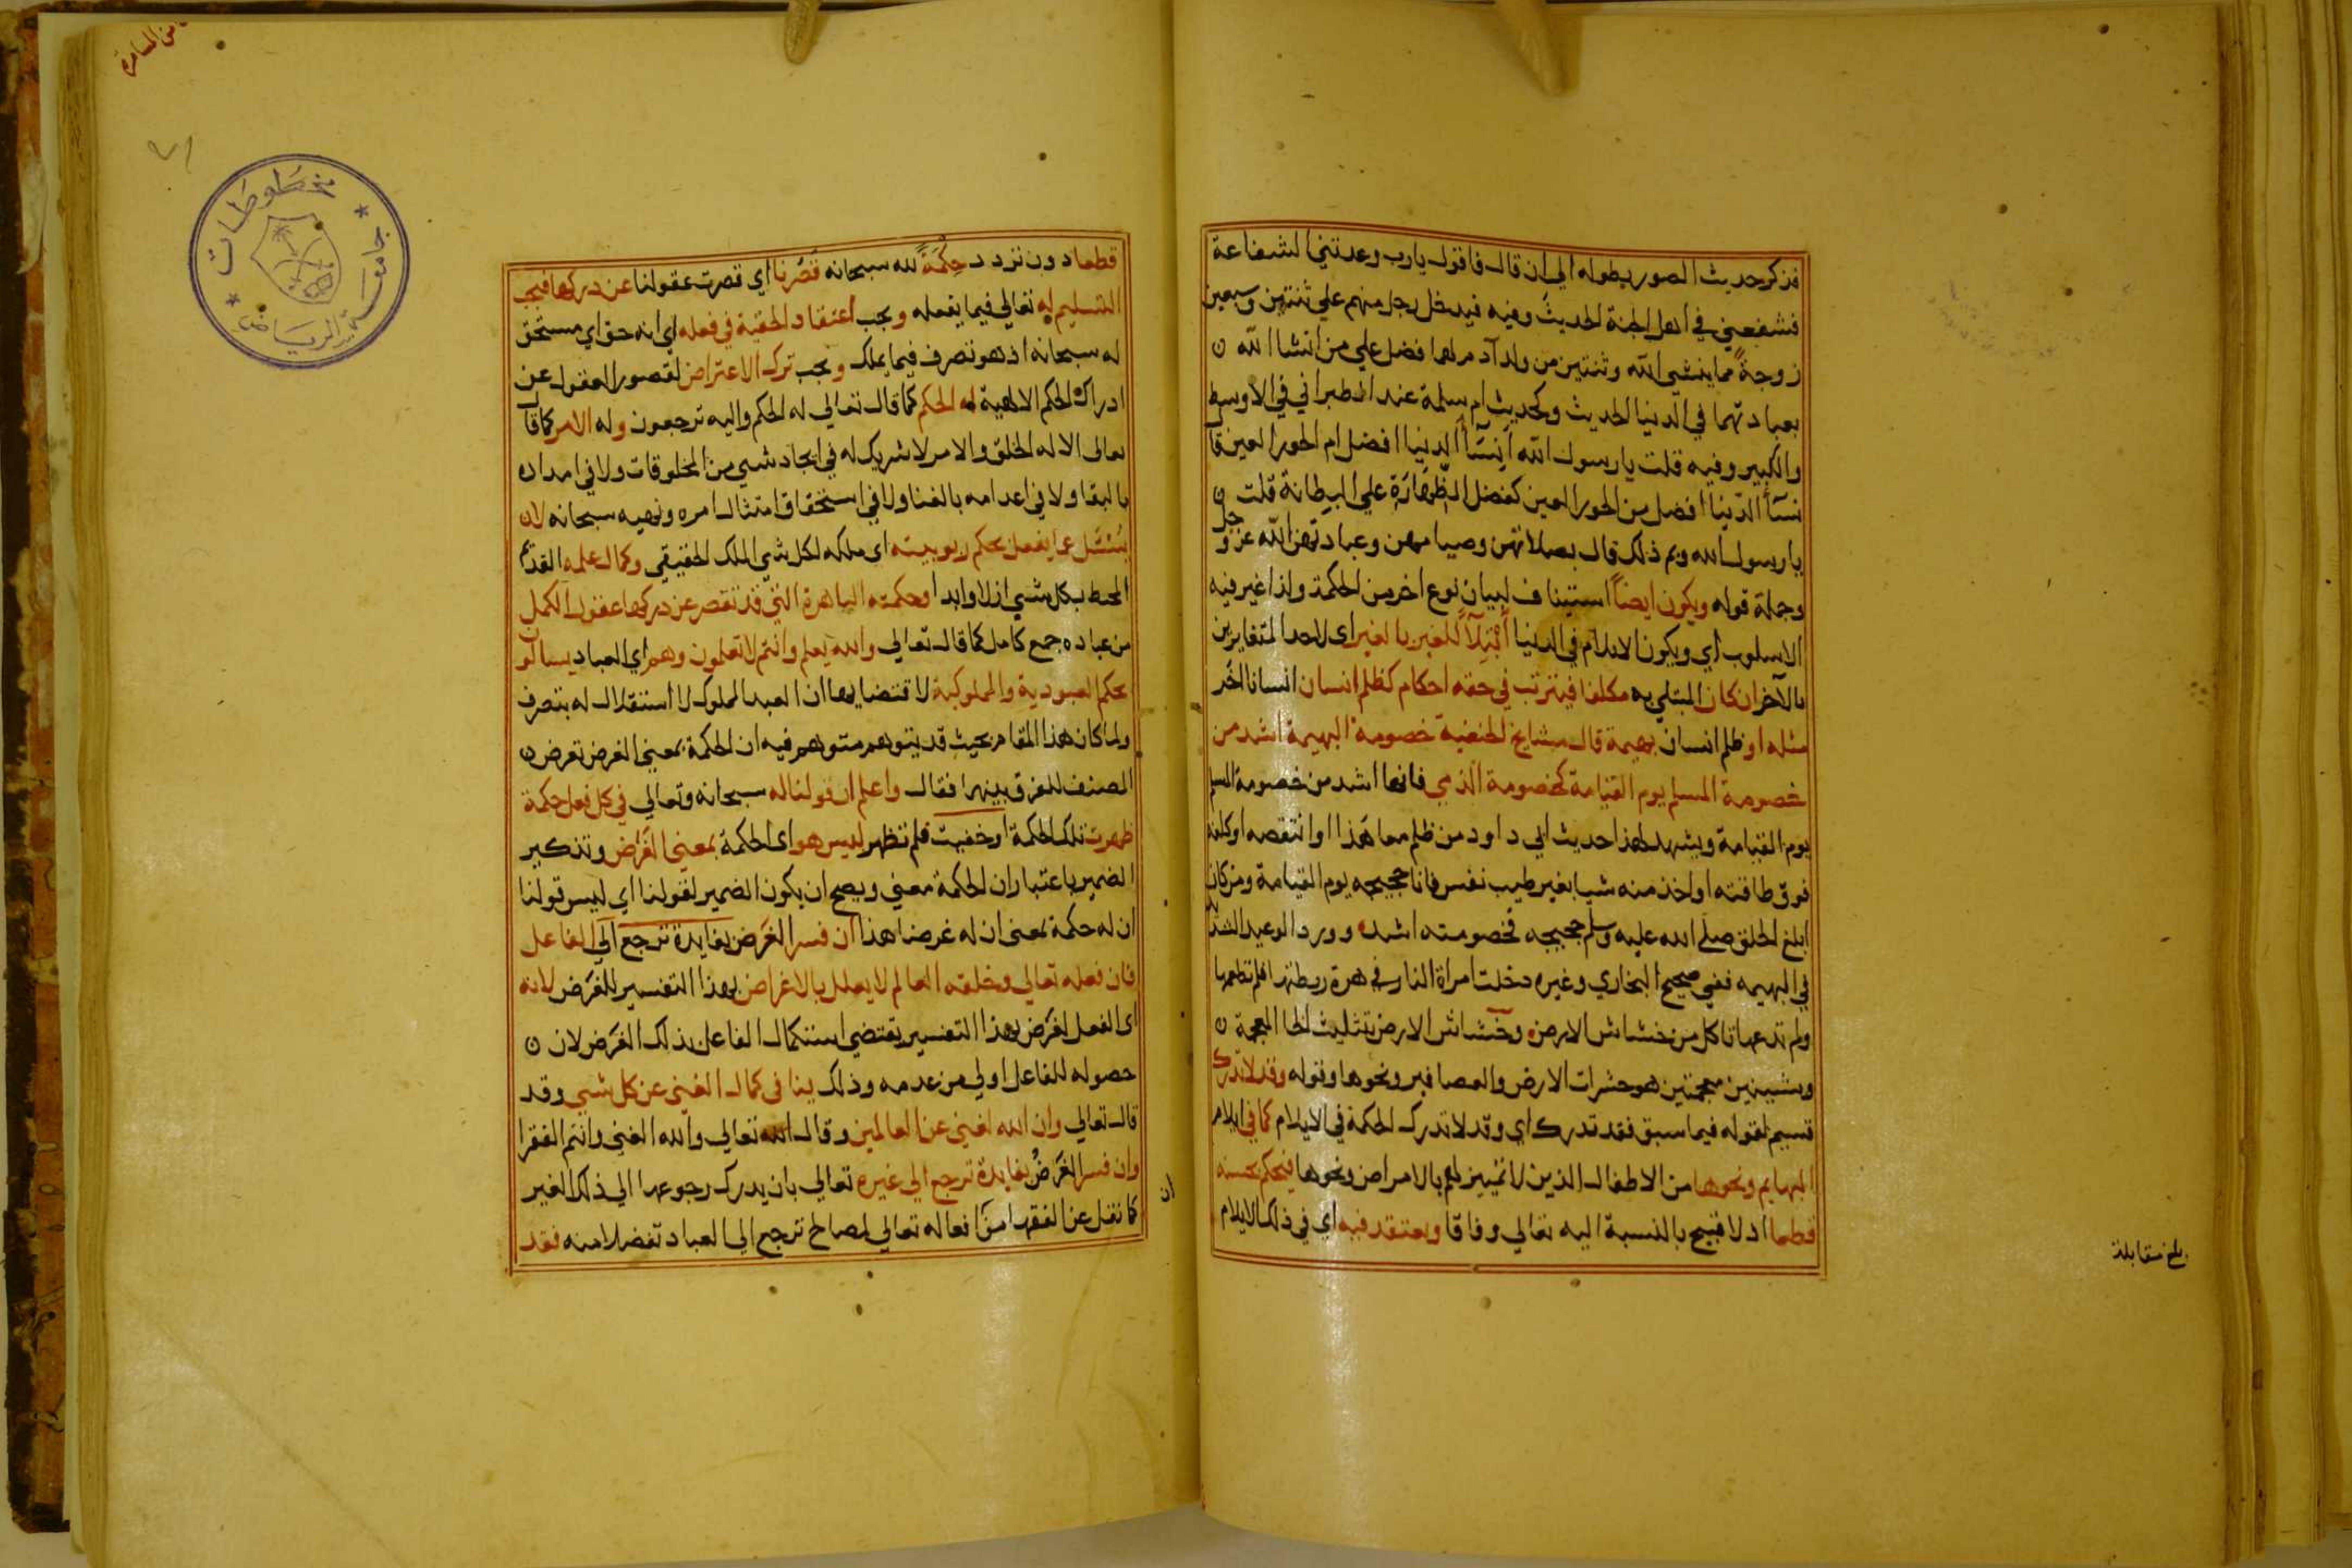 فذكر حديث الصور بطوله الي ان قال فاقول يارب وعدتني الشفاعة
فشفعني في اهل الجنة الحديث وفيه فيدخل رجل منهم علي ثنتين وسبعين
زوجة مما ينشي الله وثنتين من ولد آدم لهما فضل علي من انشا الله
بعبادتهما في الدنيا الحديث وكحديث ام سلمة عند الطبراني في الاوسط
والكبير وفيه قلت يا رسول الله انسآ الدنيا افضل ام الحور العين قال
نسآ الدنيا افضل من الحور العين كفضل الظهارة علي البطانة قلت
يا رسول الله وبم ذلك قال بصلاتهن وصيامهن وعبادتهن الله عز وجل
وجملة قوله ويكون ايضاً استيناف لبيان نوع اخر من الحكمة ولذا غير فيه
الاسلوب اي ويكون الايلام في الدنيا ابتلآً للغير بالغير اي لاحد المتغايرين
بالآخر ان كان المبتلي به مكلفا فيترتب في حقه احكام كظلم انسان انسانا اخر
مثله او ظلم انسان بهيمة قال مشايخ الحنفية خصومة البهيمة اشد من
خصومة المسلم يوم القيامة كخصومة الذمي فانها اشد من خصومة المسلم
يوم القيامة ويشهد لهذا حديث ابي داود من ظلم معاهذا او انتقصه او كلفه
فوق طاقته او اخذ منه شيا بغير طيب نفس فانا حجيجه يوم القيامة ومن كان
ابلغ الخلق صلي الله عليه وسلم حجيجه فخصومته اشد وورد الوعيد الشديد
في البهيمه ففي صحيح البخاري وغيره دخلت امراة النار في هرة ربطتها فلم تطعمها
ولم تدعها تاكل من خشاش الارض وخشاش الارض بتثليث الخا المعجمة
وبشينين معجمتين هو حشرات الارض والعصافير ونحوها وقوله وقد لا تدرك
قسيم لقوله فيما سبق فقد تدرك اي وقد لا تدرك الحكمة في الايلام كما في ايلام
البهايم ونحوها من الاطفال الذين لا تمييز لهم بالامراض ونحوها فيحكم بحسنه
قطعا اذ لا قبيح بالنسبة اليه تعالي وفاقا ويعتقد فيه اي في ذلك الايلام
بلغ مقابلة
قطعا دون تردد حكمةً لله سبحانه قصرنا اي قصرت عقولنا عن دركها فيجب
التسليم له تعالي فيما يفعله ويجب اعتقاد الحقية في فعله اي انه حق اي مستحق
له سبحانه اذ هو تصرف فيما يملك ويجب ترك الاعتراض لقصور العقول عن
ادراك الحكم الالهية له الحكم كما قال تعالي له الحكم واليه ترجعون وله الامر كما قال
تعالى الا له الخلق والامر لا شريك له في ايجاد شي من المخلوقات ولا في امداده
بالبقا ولا في اعدامه بالفنا ولا في استحقاق امتثال امره ونهيه سبحانه لا
يُسْئَل عما يفعل بحكم ربوبيته اي ملكه لكل شي الملك الحقيقي وكمال علمه القديم
المحيط بكل شي ازلا وابدا وحكمته الباهرة التي قد تقصر عن دركها عقول الكمل
من عباده جمع كامل كما قال تعالي والله يعلم وانتم لا تعلمون وهم اي العباد يسالون
بحكم العبودية والمملوكية لاقتضايهما ان العبد المملوك لا استقلال له بتصرف
ولما كان هذا المقام بحيث قد يتوهم متوهم فيه ان الحكمة بمعني الغرض تعرض
المصنف للفرق بينهما فقال واعلم ان قولنا له سبحانه وتعالي في كل فعل حكمة
ظهرت تلك الحكمة او خفيت فلم تظهر ليس هو اي الحكمة بمعني الغرض وتذكير
الضمير باعتبار ان الحكمة معني ويصح ان يكون الضمير لقولنا اي ليس قولنا
ان له حكمة بمعني ان له غرضا هذا ان فسر الغرض بفايدة ترجع الي الفاعل
فان فعله تعالي وخلقه العالم لا يعلل بالاغراض بهذا التفسير للغرض لانه
اي الفعل لغرض بهذا التفسير يقتضي استكمال الفاعل بذلك الغرض لان
حصوله للفاعل اولي من عدمه وذلك ينافي كمال الغني عن كل شي وقد
قال تعالي وان الله لغني عن العالمين وقال الله تعالي والله الغني وانتم الفقرا
وان فسر الغرض بفايدة ترجع الي غيره تعالي بان يدرك رجوعها الي ذلك الغير
كما نقل عن الفقها من افعاله تعالي لمصالح ترجع الي العباد تفضلا منه فقد
ان
جامعة الرياض
مخطوطات